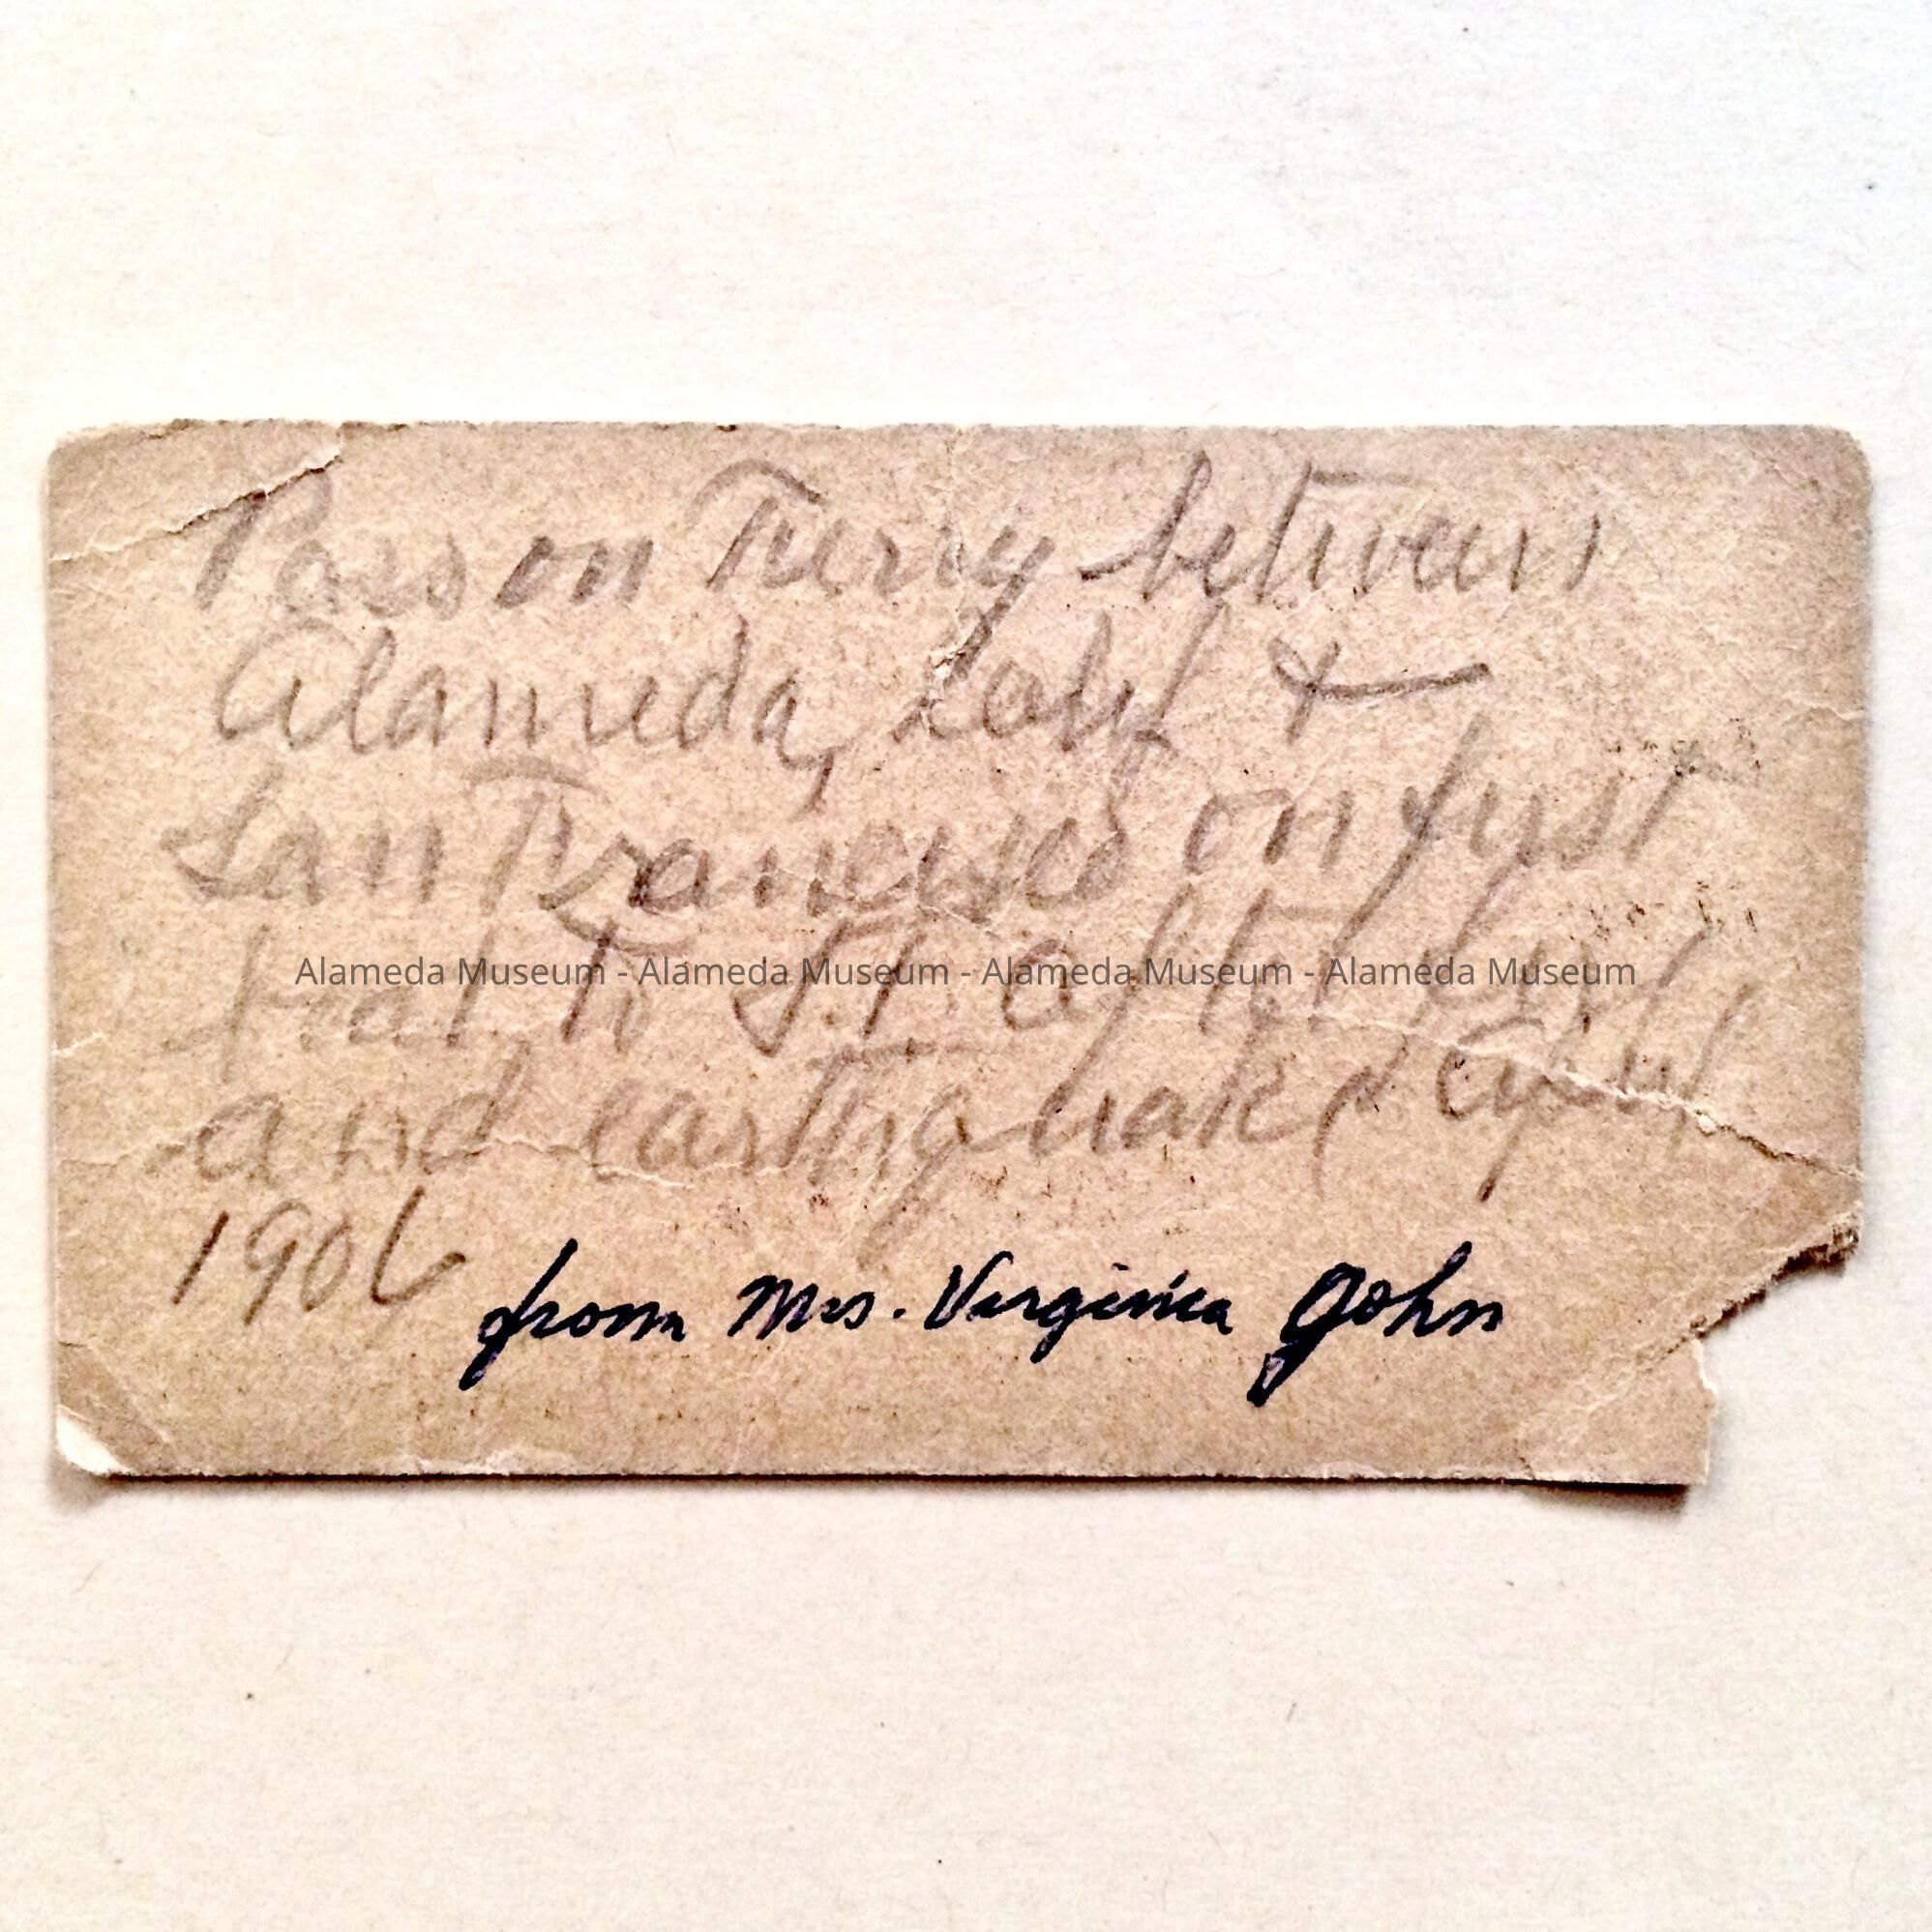 Pass on Ferry between
Alameda, Calif &
San Francisco on first
boat to S.F. after fire
and earthquake, April
1906
from Mrs. Virginia John
Alameda Museum - Alameda Museum - Alameda Museum - Alameda Museum